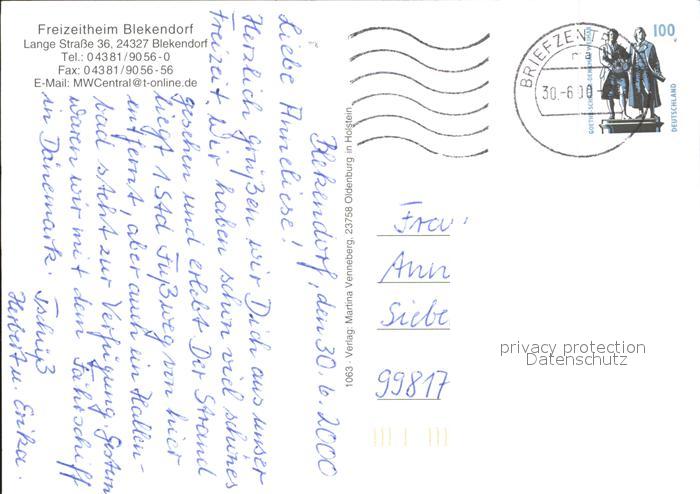 Freizeitheim Blekendorf
Lange Straße 36, 24327 Blekendorf
Tel.: 0 43 81 / 90 56 - 0
Fax: 0 43 81 / 90 56 - 56
E-Mail: MWCentral@t-online.de
Blekendorf, den 30.6.2000
Liebe Anneliese!
Herzlich grüßen wir Dich aus unser
Freizeit. Wir haben schon viel schönes
gesehen und erlebt. Der Strand
liegt 1 Std Fußweg von hier
entfernt, aber auch ein Hallen-
bad steht zur Verfügung. Gestern
waren wir mit dem Fährschiff
in Dänemark. Tschüß
Herbert u. Erika.
1063 · Verlag: Martina Venneberg, 23758 Oldenburg in Holstein
BRIEFZEN
30.-6.00
100
GOETHE-SCHILLER-DENKMAL WEIMAR
DEUTSCHLAND
Frau
Ann
Siebe
99817
privacy protection
Datenschutz